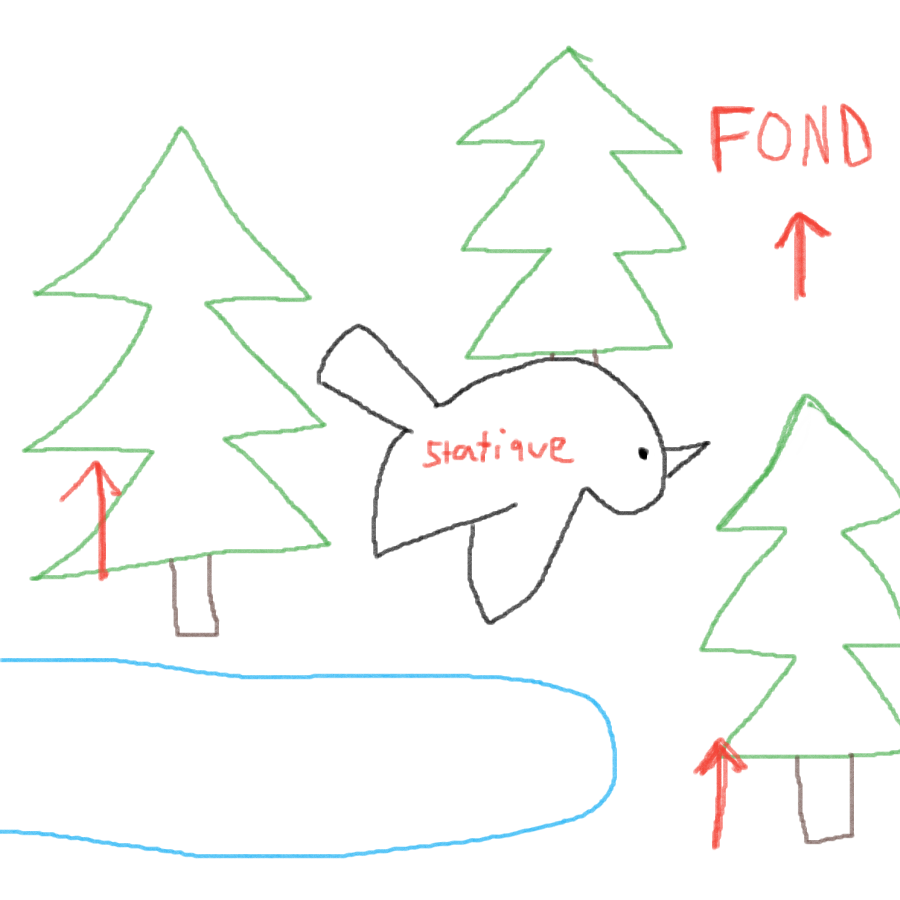 FOND
statique